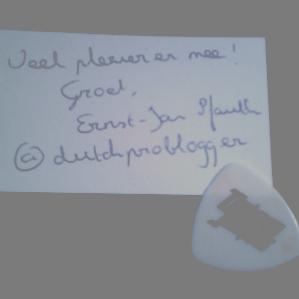 Veel plezier er mee!
Groet,
Ernst-Jan Pfauth
@dutchproblogger